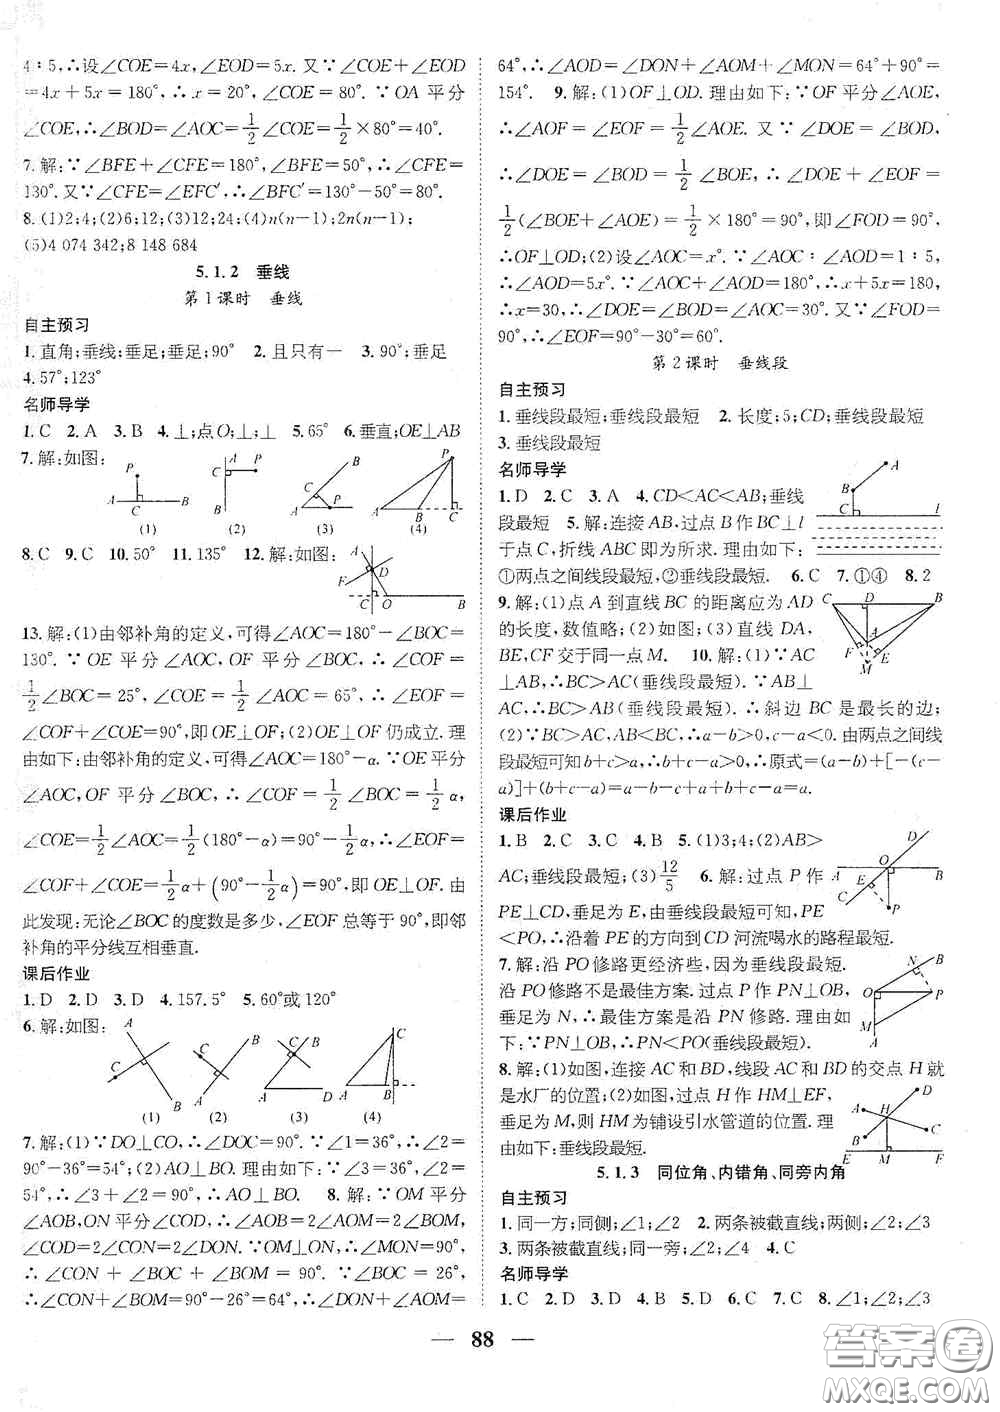 4∶5,∴设∠COE=4x,∠EOD=5x. 又∵∠COE+∠EOD
=4x+5x=180°,∴x=20°,∠COE=80°. ∵OA 平分
∠COE,∴∠BOD=∠AOC=1/2∠COE=1/2×80°=40°.
7. 解:∵∠BFE+∠CFE=180°,∠BFE=50°,∴∠CFE=
130°. 又∵∠CFE=∠EFC′,∴∠BFC′=130°-50°=80°.
8. (1)2;4;(2)6;12;(3)12;24;(4)n(n-1);2n(n-1);
(5)4 074 342;8 148 684
5.1.2 垂线
第1课时 垂线
自主预习
1. 直角;垂线;垂足;垂足;90° 2. 且只有一 3. 90°;垂足
4. 57°;123°
名师导学
1. C 2. A 3. B 4. ⊥;点O;⊥;⊥ 5. 65° 6. 垂直;OE⊥AB
7. 解:如图:
P A C B (1)
A C P B (2)
B C P A (3)
P A B C (4)
8. C 9. C 10. 50° 11. 135° 12. 解:如图:
A F D C O B
13. 解:(1)由邻补角的定义,可得∠AOC=180°-∠BOC=
130°. ∵OE 平分∠AOC,OF 平分∠BOC,∴∠COF=
1/2∠BOC=25°,∠COE=1/2∠AOC=65°,∴∠EOF=
∠COF+∠COE=90°,即OE⊥OF;(2)OE⊥OF仍成立. 理
由如下:由邻补角的定义,可得∠AOC=180°-α. ∵OE 平分
∠AOC,OF 平分∠BOC,∴∠COF=1/2∠BOC=1/2α,
∠COE=1/2∠AOC=1/2(180°-α)=90°-1/2α,∴∠EOF=
∠COF+∠COE=1/2α+(90°-1/2α)=90°,即OE⊥OF. 由
此发现:无论∠BOC的度数是多少,∠EOF总等于90°,即邻
补角的平分线互相垂直.
课后作业
1. D 2. D 3. D 4. 157.5° 5. 60°或120°
6. 解:如图:
A C B (1)
B C A (2)
B C A D (3)
C A B (4)
7. 解:(1)∵DO⊥CO,∴∠DOC=90°. ∵∠1=36°,∴∠2=
90°-36°=54°;(2)AO⊥BO. 理由如下:∵∠3=36°,∠2=
54°,∴∠3+∠2=90°,∴AO⊥BO. 8. 解:∵OM 平分
∠AOB,ON 平分∠COD,∴∠AOB=2∠AOM=2∠BOM,
∠COD=2∠CON=2∠DON. ∵OM⊥ON,∴∠MON=90°,
∴∠CON+∠BOC+∠BOM=90°. ∵∠BOC=26°,
∴∠CON+∠BOM=90°-26°=64°,∴∠DON+∠AOM=
64°,∴∠AOD=∠DON+∠AOM+∠MON=64°+90°=
154°. 9. 解:(1)OF⊥OD. 理由如下:∵OF 平分∠AOE,
∴∠AOF=∠EOF=1/2∠AOE. 又∵∠DOE=∠BOD,
∴∠DOE=∠BOD=1/2∠BOE,∴∠DOE+∠EOF=
1/2(∠BOE+∠AOE)=1/2×180°=90°,即∠FOD=90°,
∴OF⊥OD;(2)设∠AOC=x°. ∵∠AOC∶∠AOD=1∶5,
∴∠AOD=5x°. ∵∠AOC+∠AOD=180°,∴x+5x=180,
∴x=30,∴∠DOE=∠BOD=∠AOC=30°. 又∵∠FOD=
90°,∴∠EOF=90°-30°=60°.
第2课时 垂线段
自主预习
1. 垂线段最短;垂线段最短 2. 长度;5;CD;垂线段最短
3. 垂线段最短
名师导学
1. D 2. C 3. A 4. CD<AC<AB;垂线
段最短 5. 解:连接AB,过点B作BC⊥l
于点C,折线ABC即为所求. 理由如下:
①两点之间线段最短,②垂线段最短. 6. C 7. ①④ 8. 2
A B C l
9. 解:(1)点A到直线BC的距离应为AD
的长度,数值略;(2)如图;(3)直线DA,
BE,CF交于同一点M. 10. 解:(1)∵AC
⊥AB,∴BC>AB(垂线段最短). ∵AB⊥
AC,∴BC>AB(垂线段最短). ∴斜边BC是最长的边;
(2)∵BC>AC,AB>AC,∴a-b>0,c-a<0. 由两点之间线
段最短可知b+c>a,∴b+c-a>0,∴原式=(a-b)+[-(c-
a)]+(b+c-a)=a-b-c+a+b+c-a=a.
C D B A F E M
课后作业
1. B 2. C 3. C 4. B 5. (1)3;4;(2)AB>
AC;垂线段最短;(3)12/5 6. 解:过点P作
PE⊥CD,垂足为E,由垂线段最短可知,PE
<PO,∴沿着PE的方向到CD河流喝水的路程最短.
D O A E B C P
7. 解:沿PO修路更经济些,因为垂线段最短.
沿PO修路不是最佳方案. 过点P作PN⊥OB,
垂足为N,∴最佳方案是沿PN修路. 理由如
下:∵PN⊥OB,∴PN<PO(垂线段最短).
N B O P M A
8. 解:(1)如图,连接AC和BD,线段AC和BD的交点H就
是水厂的位置;(2)如图,过点H作HM⊥EF,
垂足为M,则HM为铺设引水管道的位置. 理
由如下:垂线段最短.
D A H C B E M F
5.1.3 同位角、内错角、同旁内角
自主预习
1. 同一方;同侧;∠1;∠2 2. 两条被截直线;两侧;∠2;∠3
3. 两条被截直线;同一旁;∠2;∠4 4. C
名师导学
1. C 2. D 3. D 4. B 5. D 6. D 7. C 8. ∠1;∠2;∠3
88
答案圈
MXQE.COM